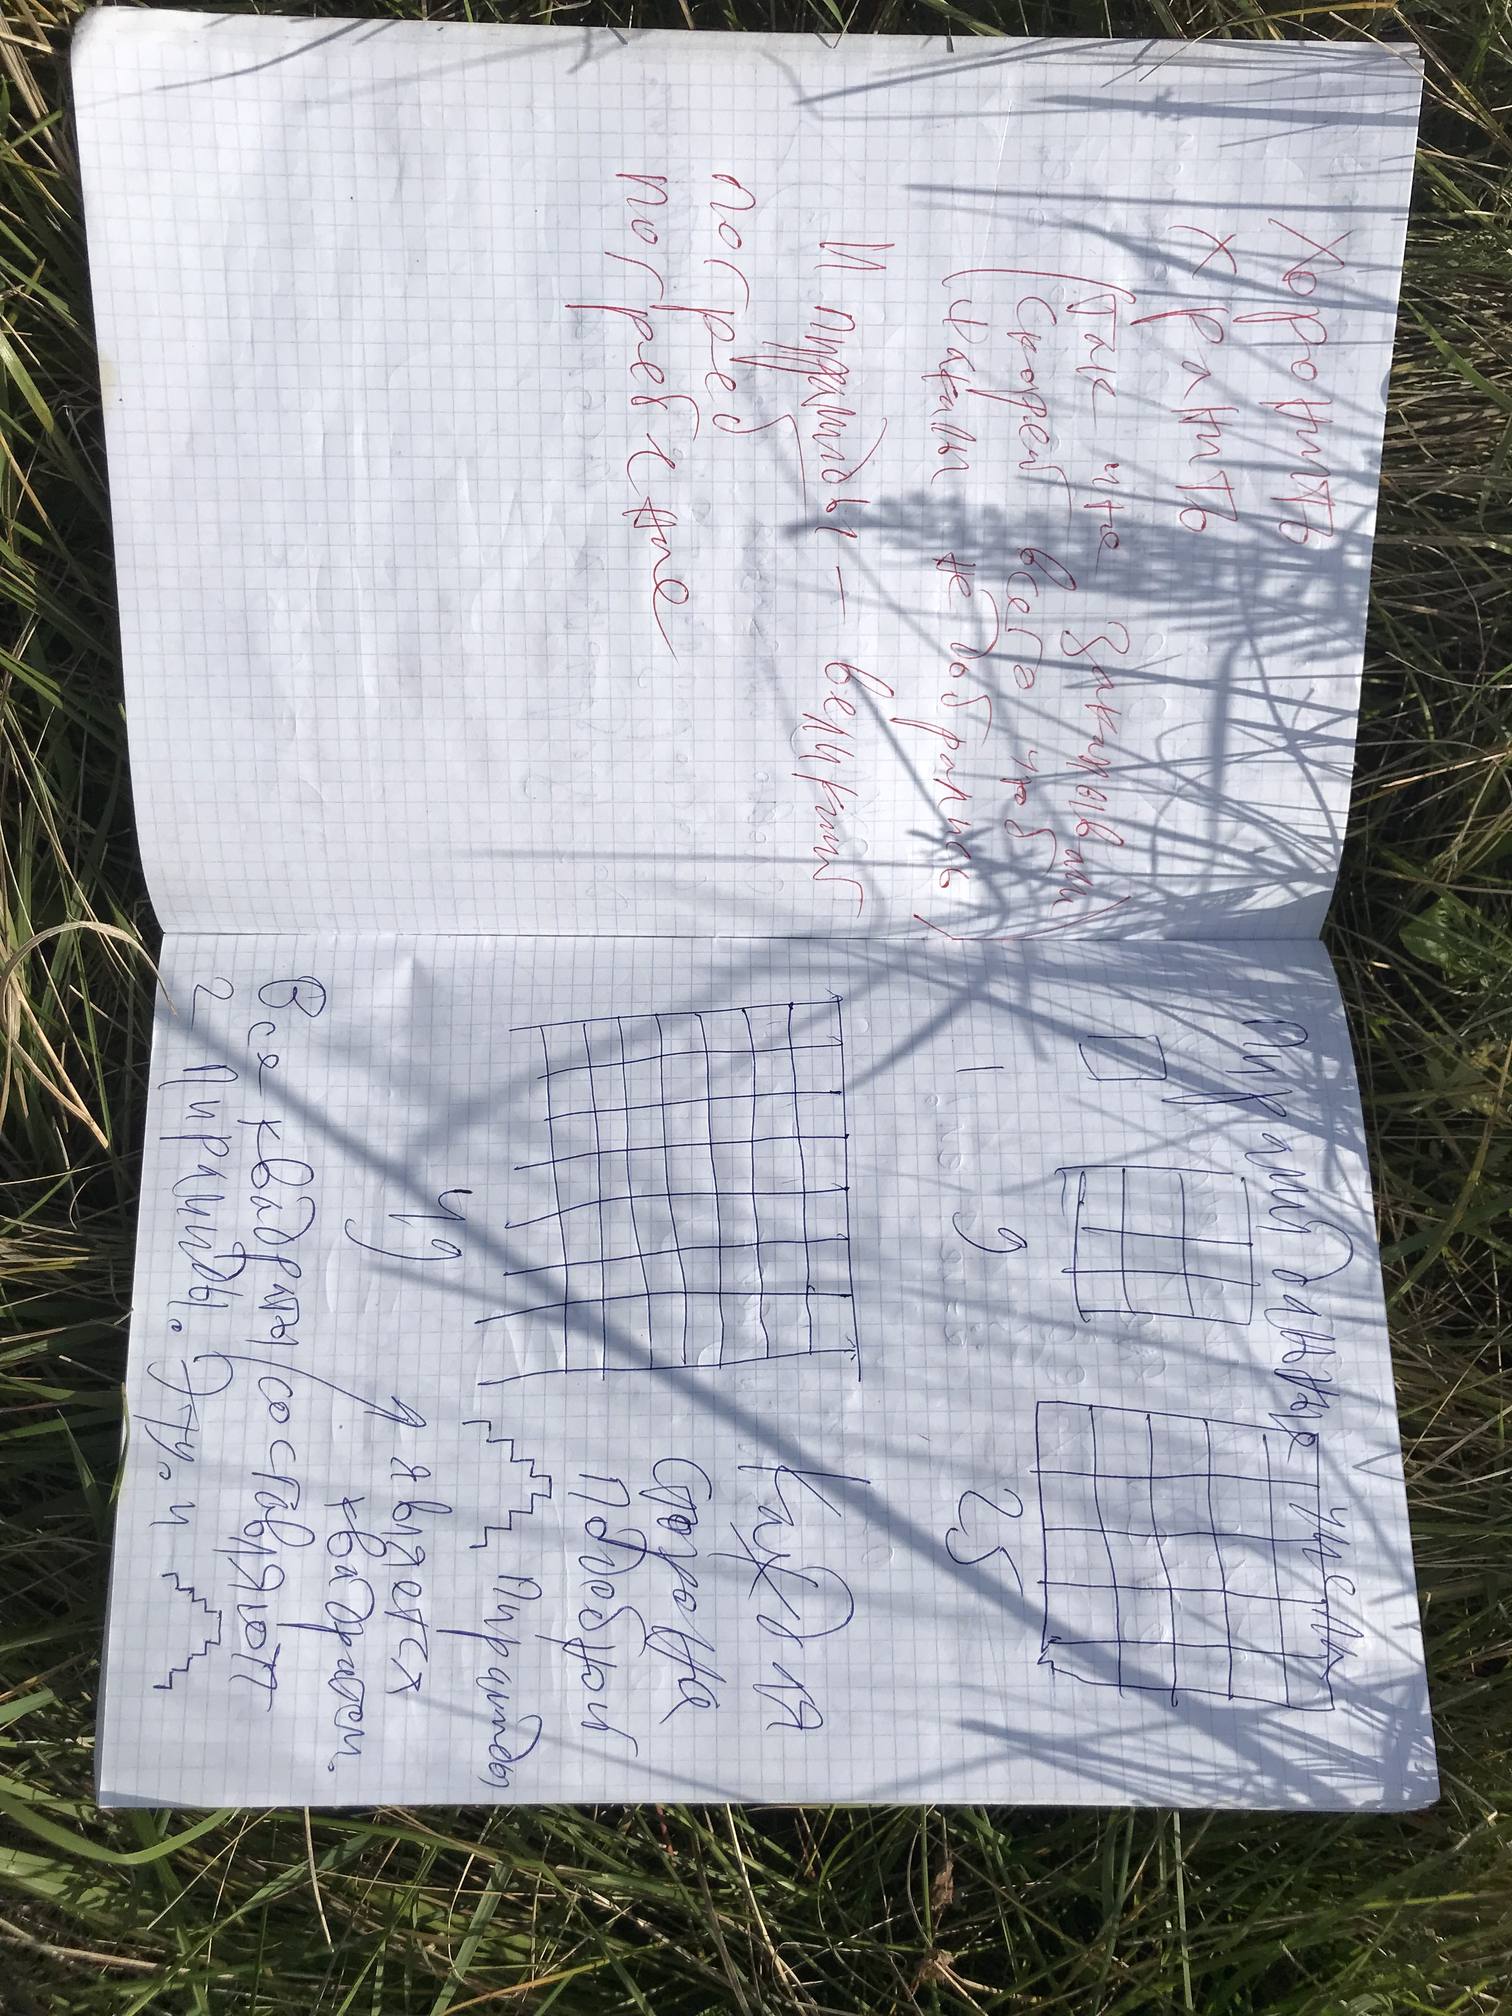 Хоронить
хранить
(так что закапывали
скорей всего чтоб
шакалы не добрались)
И пирамиды – великий
погреб
погребение
Пирамидальные числа
1 9 25
49
Каждая
сторона
подобной
пирамиды
является
квадратом.
Все квадраты составляют
2 пирамиды. Эту. и